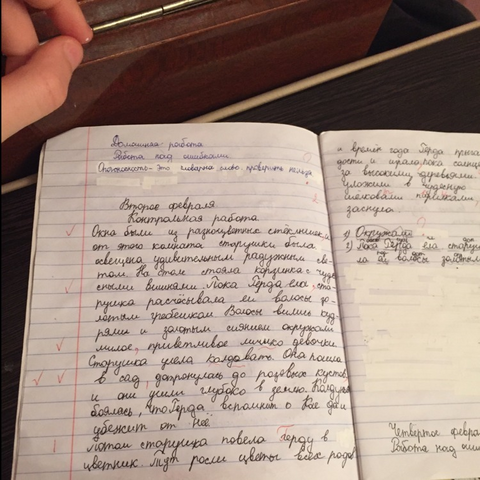 Домашняя работа
Работа над ошибками.
это словарное слово, проверить нельзя
Второе февраля
Контрольная работа
Окна были из разноцветных стёклышек, и
от этого комната старушки была
освещена удивительным радужным све-
том. На стояла корзинка с чуде-
сными вишнями. Пока Герда ела, ста-
рушка расчёсывала ей волосы зо-
лотым гребешком. Волосы вились куд-
рями и золотым сиянием окружали
милое, приветливое личико девочки.
Старушка умела колдовать. Она пошла
в сад, дотронулась до розовых кустов
и они ушли глубоко в землю. Колдунья
боялась, что Герда вспомнит о Кае да и
убежит от неё.
Потом старушка повела Герду в
цветник. Тут росли цветы всех
и времён года. Герда
дости и играла, пока солнце
за высокими деревьями.
уложили в чудесную
шелковыми перинками,
заснула.
1) Окружали
2) Пока Герда ела, стару
ла ей волосы золотым
Четвёртое февраля
Работа над